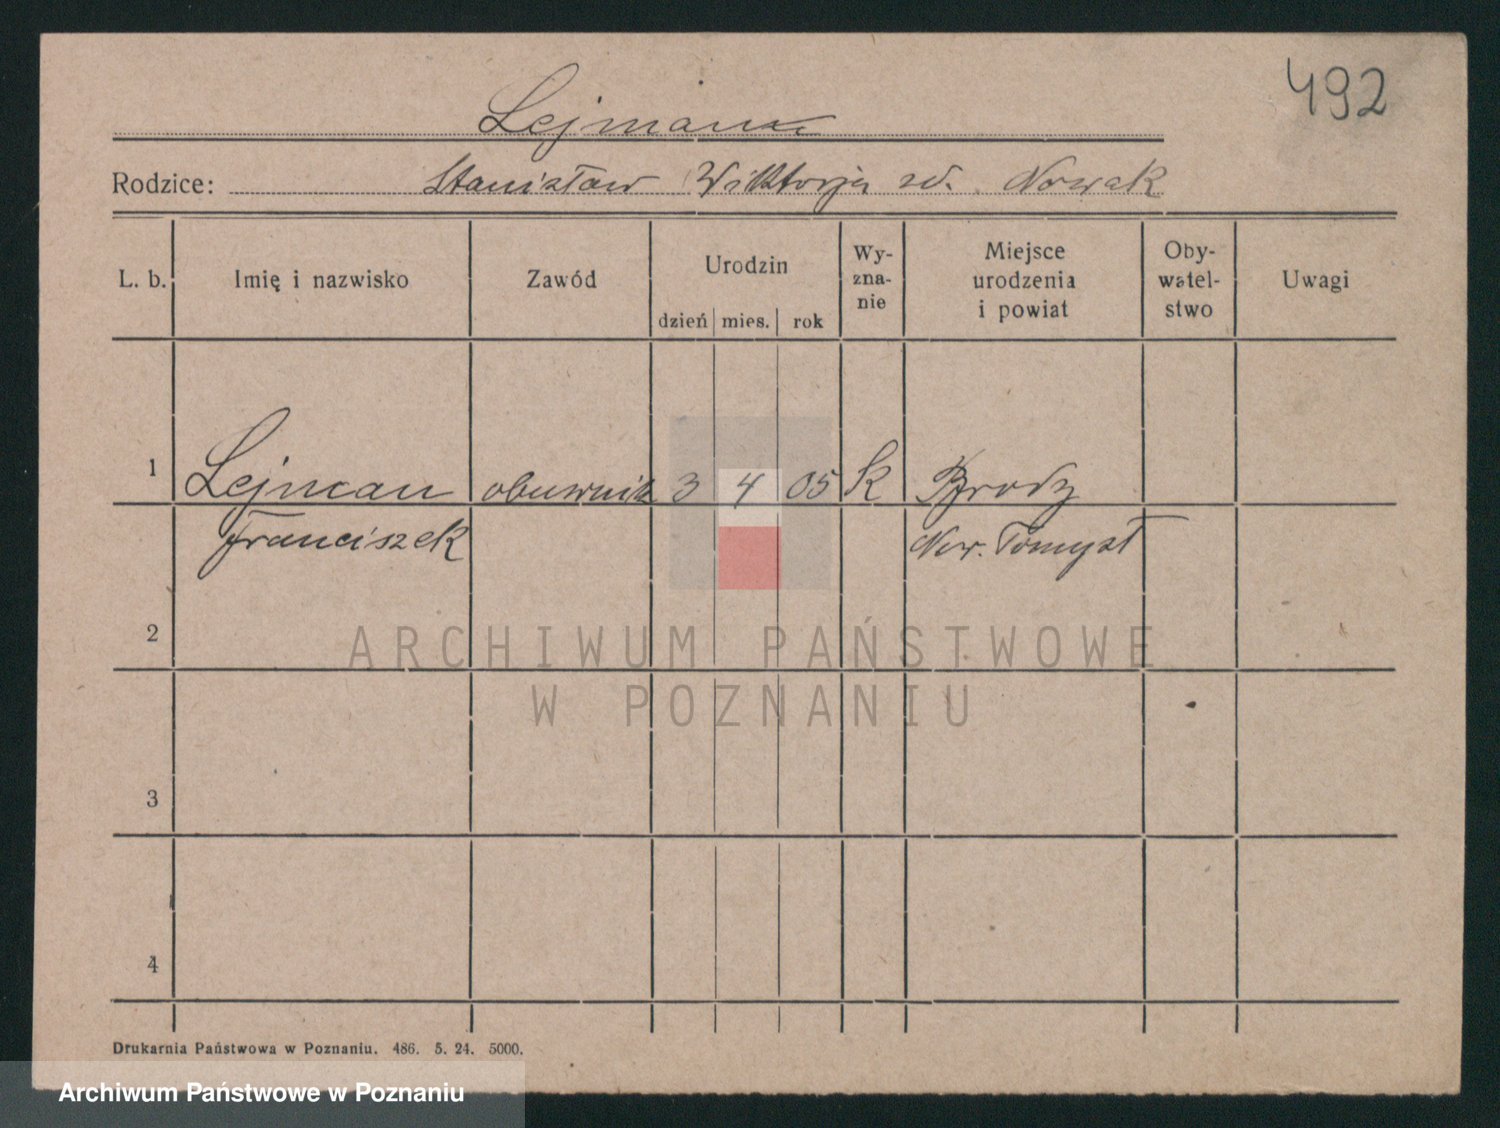 492
Lejman
Rodzice: Stanisław Wiktorja zd. Nowak
L. b. Imię i nazwisko Zawód Urodzin Wy-zna-nie Miejsce urodzenia i powiat Oby-watel-stwo Uwagi
dzień mies. rok
1 Lejman obuwnik 3 4 05 k Brody
Franciszek Now. Tomysl
2
ARCHIWUM PAŃSTWOWE
W POZNANIU
3
4
Drukarnia Państwowa w Poznaniu. 486. 5. 24. 5000.
Archiwum Państwowe w Poznaniu